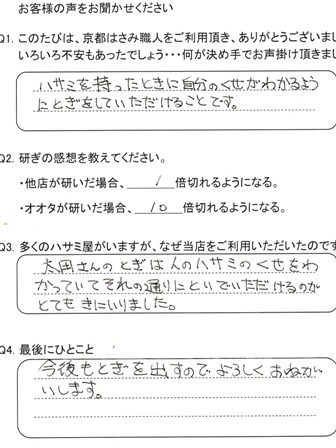 お客様の声をお聞かせください
Q1. このたびは、京都はさみ職人をご利用頂き、ありがとうございまし
いろいろ不安もあったでしょう・・・何が決め手でお声掛け頂きまし
ハサミを持ったときに自分のくせがわかるよう
にとぎをしていただけることです。
Q2. 研ぎの感想を教えてください。
・他店が研いだ場合、 1 倍切れるようになる。
・オオタが研いだ場合、 10 倍切れるようになる。
Q3. 多くのハサミ屋がいますが、なぜ当店をご利用いただいたのです
太田さんのとぎは人のハサミのくせをわ
かっていてそれの通りにといでいただけるのが
とてもきにいりました。
Q4. 最後にひとこと
今後もとぎを出すのでよろしくおねが
いします。